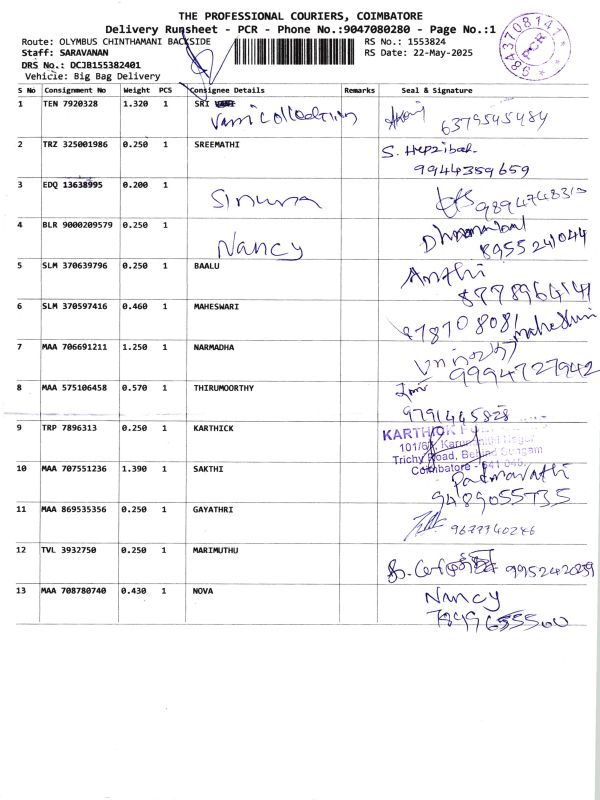 THE PROFESSIONAL COURIERS, COIMBATORE
Delivery Runsheet - PCR - Phone No.:9047080280 - Page No.:1
Route: OLYMBUS CHINTHAMANI BACKSIDE
RS No.: 1553824
Staff: SARAVANAN
RS Date: 22-May-2025
DRS No.: DCJB155382401
Vehicle: Big Bag Delivery
9843708141
PCR
S No Consignment No Weight PCS Consignee Details Remarks Seal & Signature
1 TEN 7920328 1.320 1 SRI
Vamsi Collection 6379545484
2 TRZ 325001986 0.250 1 SREEMATHI S. Hepzibah
9944359659
3 EDQ 13638995 0.200 1
9894748313
4 BLR 9000209579 0.250 1 Nancy
8955241044
5 SLM 370639796 0.250 1 BAALU Ananthi
8778964141
6 SLM 370597416 0.460 1 MAHESWARI
8787708081 maheshwari
7 MAA 706691211 1.250 1 NARMADHA
9994727942
8 MAA 575106458 0.570 1 THIRUMOORTHY
9791445828
9 TRP 7896313 0.250 1 KARTHICK KARTHICK
Trichy Road, Behind Sungam
Coimbatore - 641 045.
10 MAA 707551236 1.390 1 SAKTHI Padmavathi
9489055735
11 MAA 869535356 0.250 1 GAYATHRI 9677740246
12 TVL 3932750 0.250 1 MARIMUTHU 995242039
13 MAA 708780740 0.430 1 NOVA Nancy